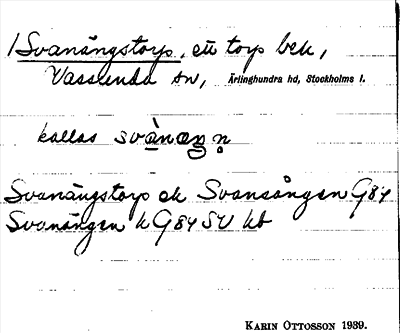 1 Svanängstorp, ett torp bek,
Vassunda sn, Ärlinghundra hd, Stockholms l.
kallas svànæŋ n̥
Svanängstorp ek Svansången G84
Svanängen k G84 SV kb
KARIN OTTOSSON 1939.